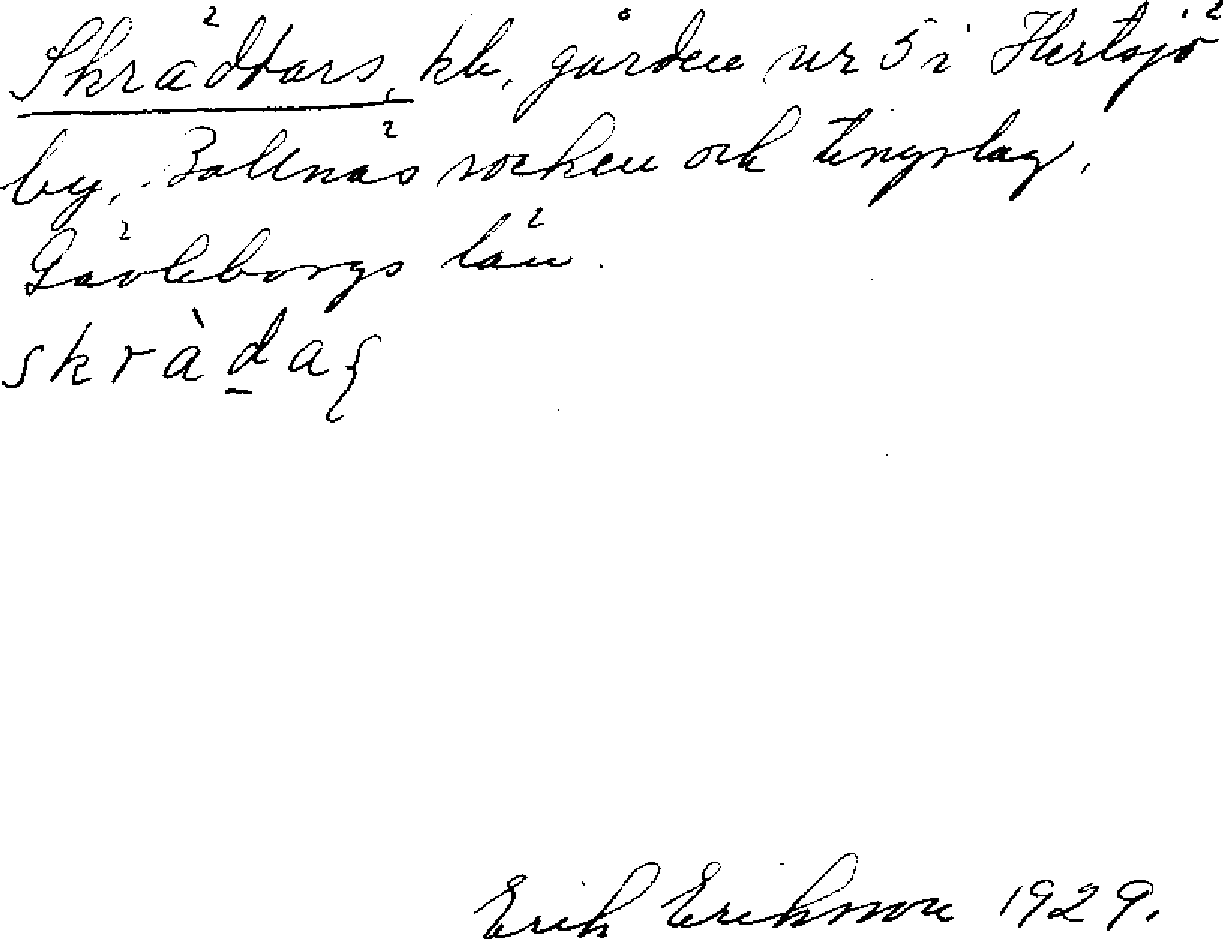 Skräddars, kb, gården nr 5 i Hertsjö
by, Bollnäs socken och tingslag,
Gävleborgs län.
skràda
Erik Eriksson 1929.